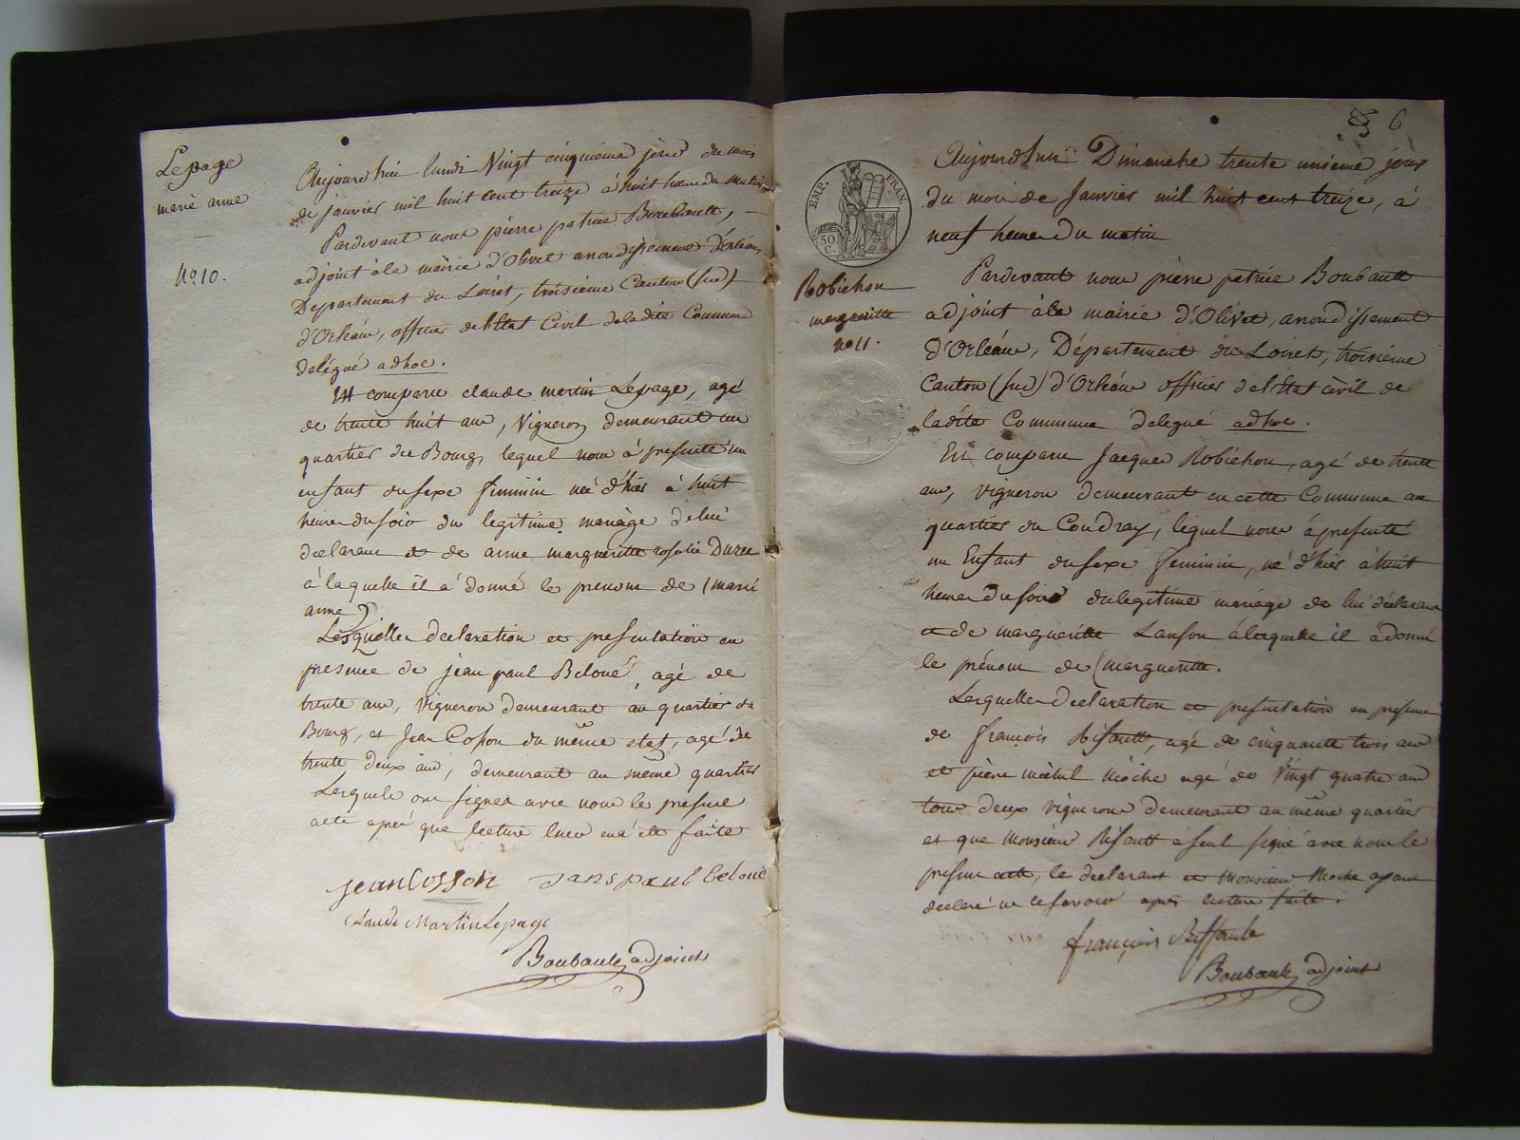 Lepage
marie anne
No. 10.
Aujourd'hui lundi Vingt cinquieme jour du mois
de janvier mil huit cent treize à huit heures du matin
Pardevant nous pierre patrice Boubault,
adjoint à la mairie d'Olivet arrondissement d'orléans
Département du Loiret, troisième Canton (sud)
d'Orléans, officier de l'Etat Civil de la dite Commune
delégué adhoc.
Est comparu claude martin Lepage, agé
de trente huit ans, Vigneron demeurant au
quartier du Bourg, lequel nous à presenté un
enfant du sexe feminin né d'hier à huit
heures du soir du legitime mariage de lui
declarant et de anne margueritte rosalie
à laquelle il a donné le prenom de (marie
anne)
Lesquelles declaration et presentation en
presence de jean paul Beloué, agé de
trente ans, vigneron demeurant au quartier du
Bourg, et Jean Cosson du même etat, agé de
trente deux ans, demeurant au même quartier
Lesquels ont signés avec nous le present
acte après que lecture leur en a été faite
jean Cosson jans paul beloué
Claude Martin Lepage
Boubault adjoint
6
EMP. FRAN.
50 C.
Robichon
margueritte
no 11.
Aujourd'hui Dimanche trente unieme jour
du mois de Janvier mil huit cent treize, à
neuf heures du matin
Pardevant nous pierre patrice Boubault
adjoint à la mairie d'Olivet, arrondissement
d'Orléans, Département du Loiret, troisième
Canton (sud) d'Orléans officier de l'Etat civil de
la dite Commune delegué adhoc.
Est comparu Jacques Robichon, agé de trente
ans, vigneron demeurant en cette Commune au
quartier du Coudray, lequel nous à presenté
un Enfant du sexe feminin, né d'hier à huit
heures du soir du legitime mariage de lui déclarant
et de margueritte Lanson à laquelle il a donné
le prénom de (margueritte.
Lesquelles declaration et presentation en presence
de françois Riffault, agé de cinquante trois ans
et pierre michel Moche agé de Vingt quatre ans
tous deux vignerons demeurant au même quartier
et que Monsieur Riffault a seul signé avec nous le
present acte, le declarant et Monsieur Moche ayant
declaré ne le savoir après lecture faite.
françois Riffault
Boubault adjoint